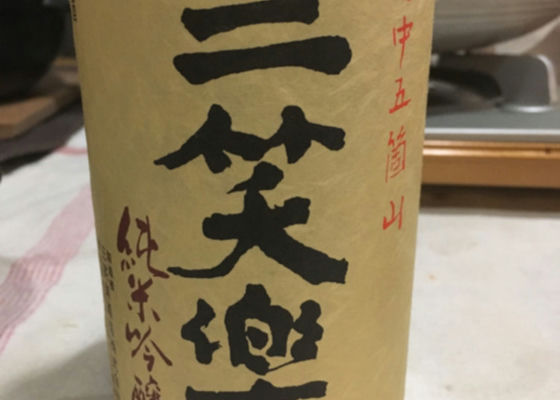 中五箇山
三笑楽
純米吟醸